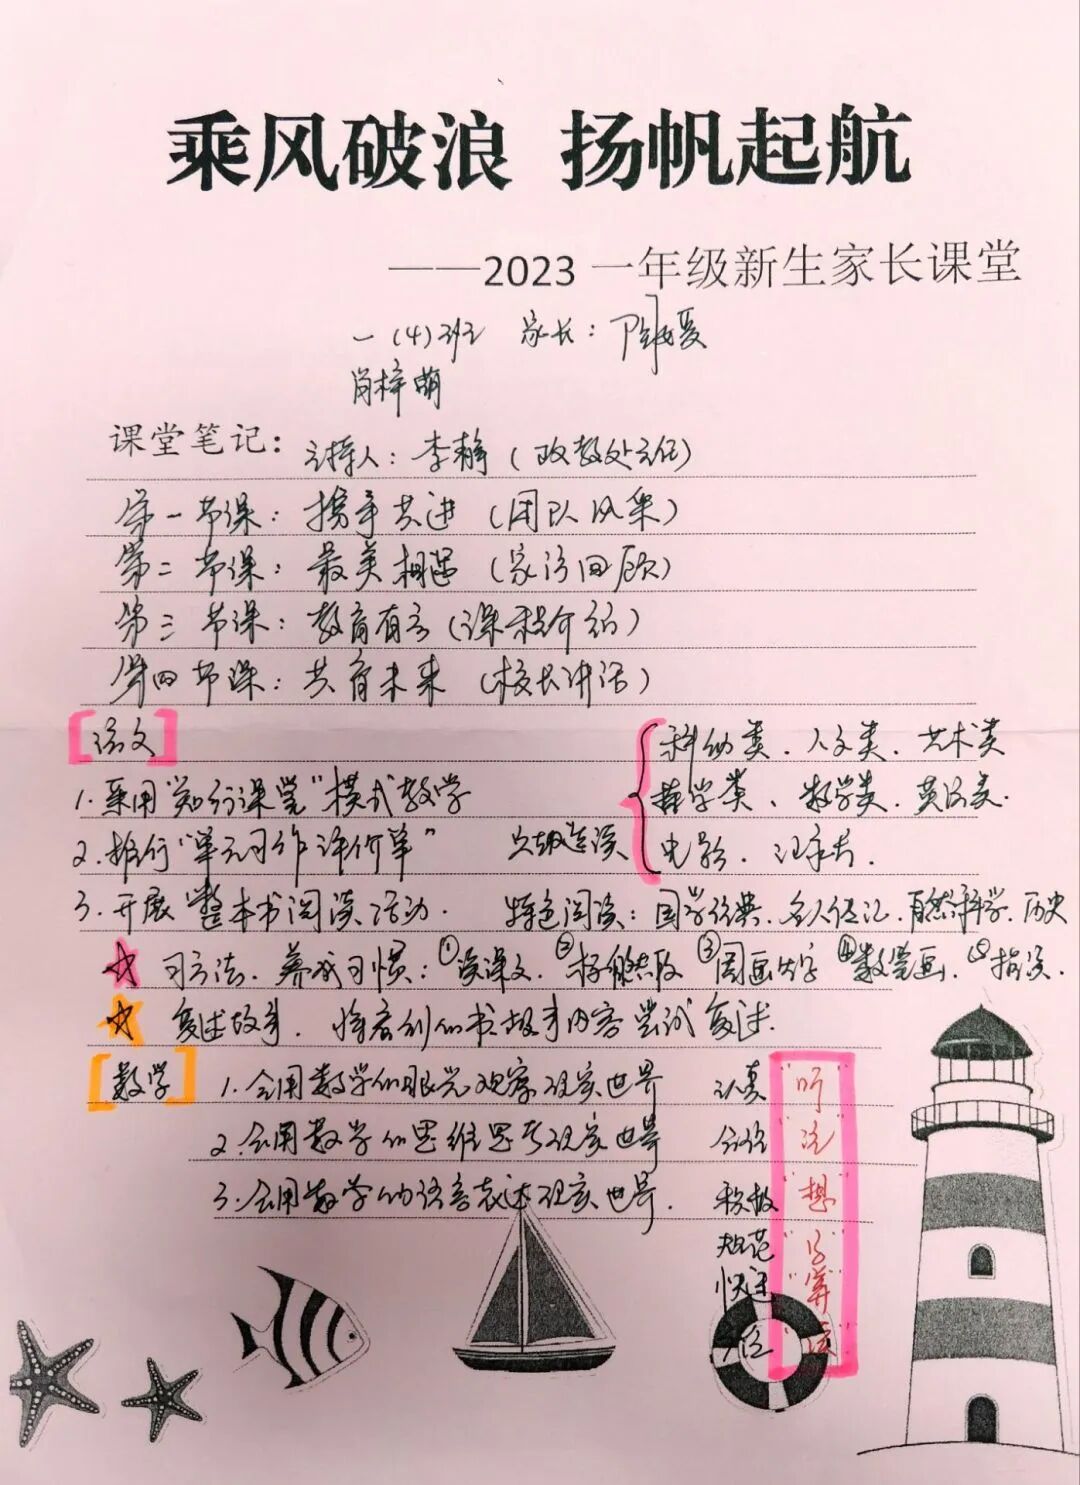 乘风破浪 扬帆起航
——2023 一年级新生家长课堂
一(4)班 家长：
肖梓萌
课堂笔记：主持人：李静（政教处主任）
第一节课：携手共进（团队风采）
第二节课：最美相遇（家访回顾）
第三节课：教育有方（课程介绍）
第四节课：共育未来（校长讲话）
[语文]
1.采用"知行课堂"模式教学
2.推行"单元习作评价单"
3.开展整本书阅读活动.
大猫连读
科幼类、人文类、艺术类
数学类、英语类.
电影、
特色阅读：国学经典、名人传记、自然科学、历史
☆ 习方法、养成习惯：①读课文、②标自然段 ③圈画生字 ④ ⑤指读.
☆ 复述故事、将看到的书报等内容尝试复述.
[数学] 1.会用数学的眼光观察现实世界
2.会用数学的思维思考现实世界
3.会用数学的语言表达现实世界.
认真"听"
积极"想"
规范"写"
快速"算"